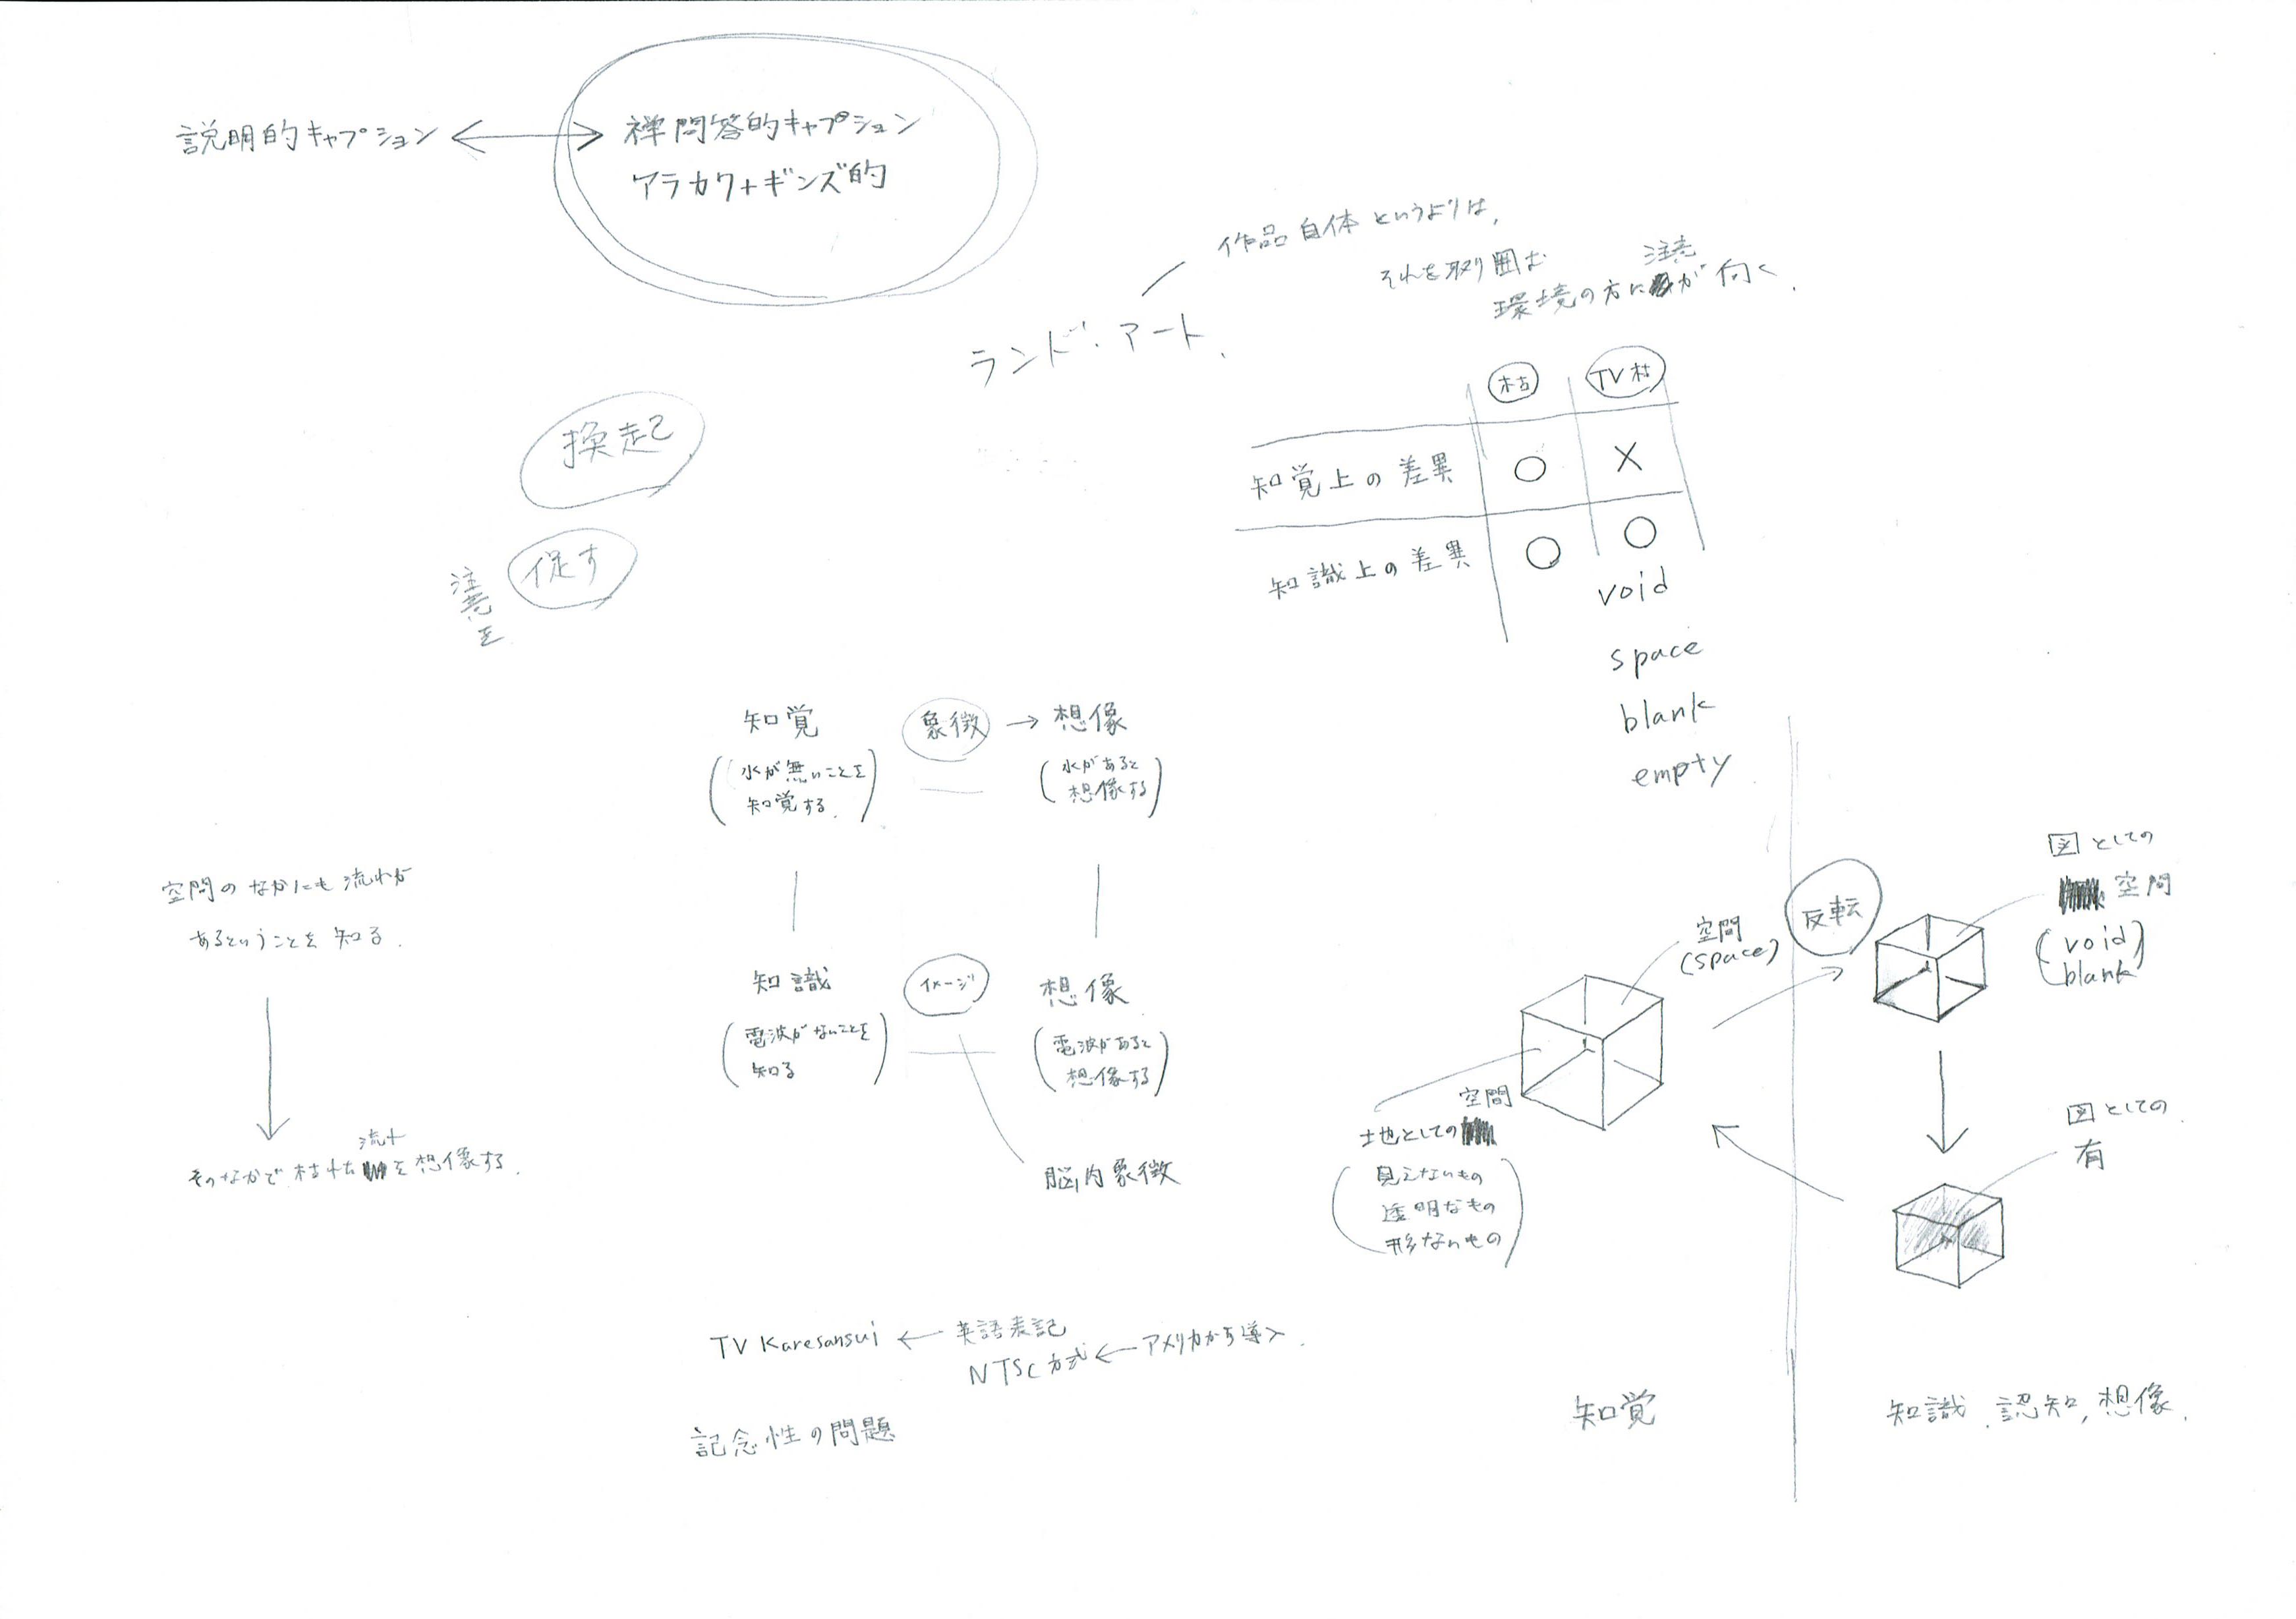 説明的キャプション
禅問答的キャプション
アラカワ+ギンズ的
作品自体というよりは,
それを取り囲む
注意
環境の方に が向く.
ランド・アート.
換起
注意を
促す
枯
TV枯
知覚上の差異 ○ ×
知識上の差異 ○ ○
void
space
blank
empty
知覚
(水が無いことを
知覚する.)
象徴
→ 想像
(水があると
想像する)
知識
(電波がないことを
知る)
イメージ
想像
(電波があると
想像する)
脳内象徴
空間のなかにも流れが
あるということを知る.
流れ
そのなかで枯れた を想像する.
反転
空間
(space)
図としての
空間
(void
blank)
空間
土地としての
(見えないもの
透明なもの
形ないもの)
図としての
有
TV Karesansui ← 英語表記
NTSC方式 ← アメリカから導入.
記念性の問題
知覚
知識, 認知, 想像.